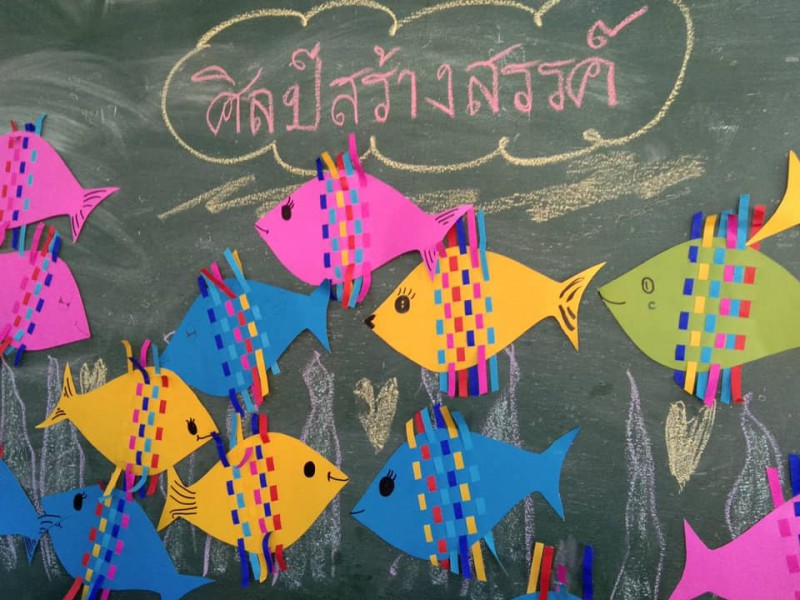 ศิลป์สร้างสรรค์